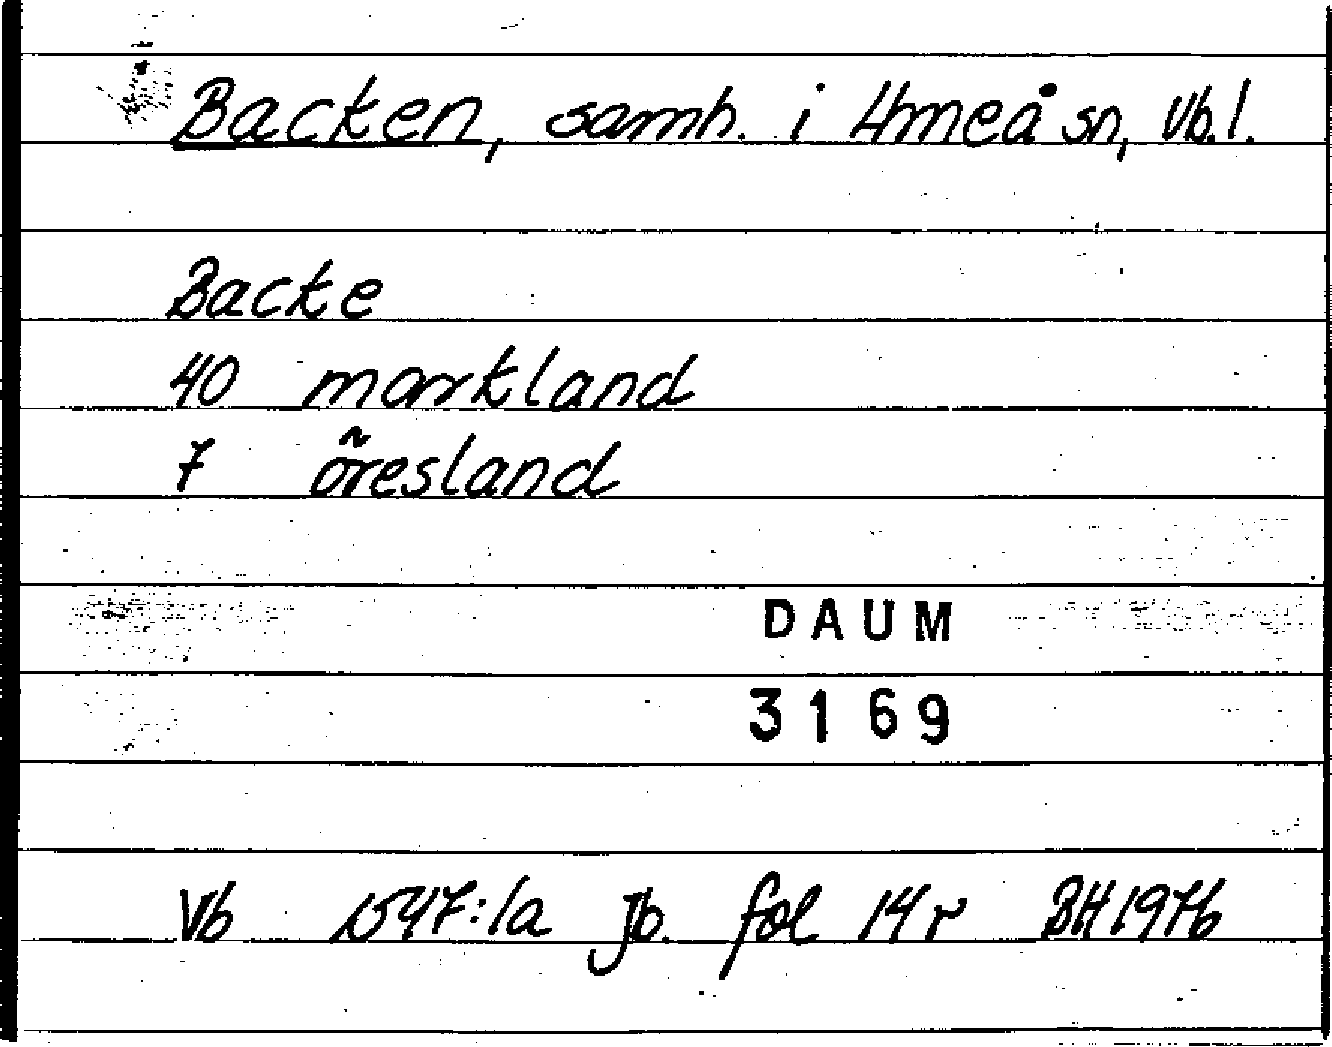 Backen, samh. i Umeå sn, Vb. l.
Backe
40 markland
7 öresland
DAUM
3169
Vb 1547:1a Jb. fol 14 r BH 1976